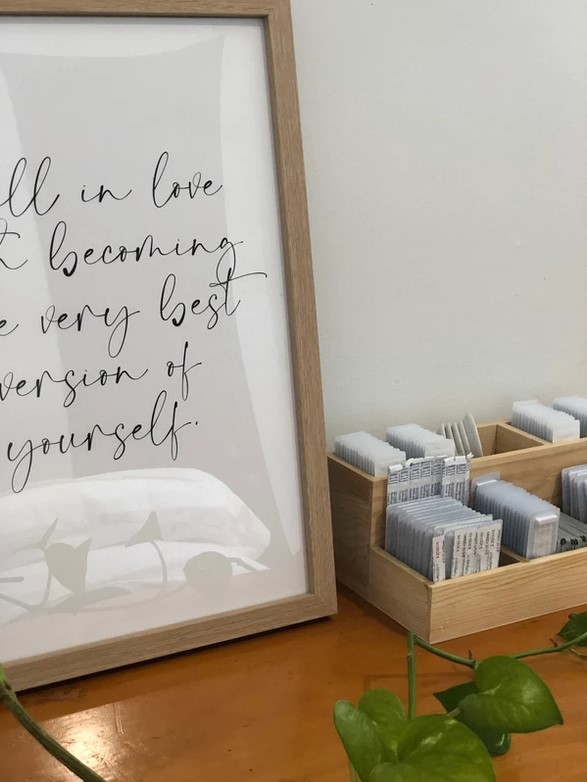 ll in love
becoming
e very best
version of
yourself.